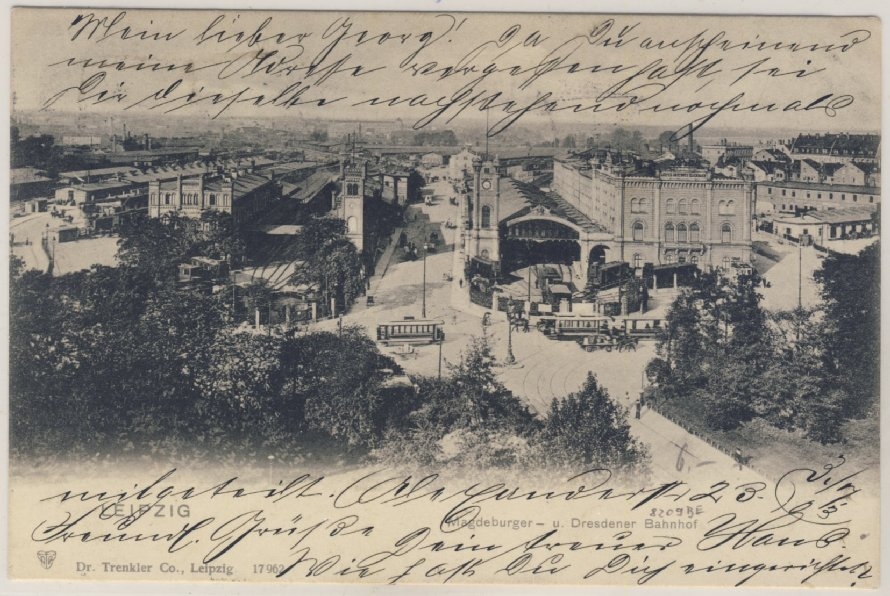 Mein lieber Georg! Da Du anscheinend
meine Adresse vergessen hast, sei
Dir dieselbe nachstehend nochmals
mitgeteilt. Alexanderstr 23.
LEIPZIG
Magdeburger- u. Dresdener Bahnhof
8209 BE
6.-
Freundl. Grüße Dein treuer Hans.
Dr. Trenkler Co., Leipzig 17962
Wie hast Du Dich eingerichtet?